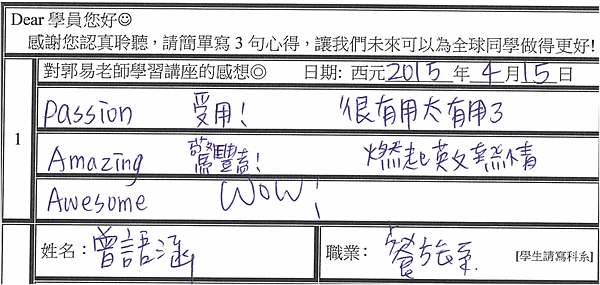 Dear 學員您好☺
感謝您認真聆聽，請簡單寫 3 句心得，讓我們未來可以為全球同學做得更好!
對郭易老師學習講座的感想◎ 日期: 西元2015年4月15日
1
Passion 受用! 很有用太有用了
Amazing 驚豔! 燃起熱情
Awesome Wow!
姓名: 曾語涵 職業: 餐旅系 [學生請寫科系]